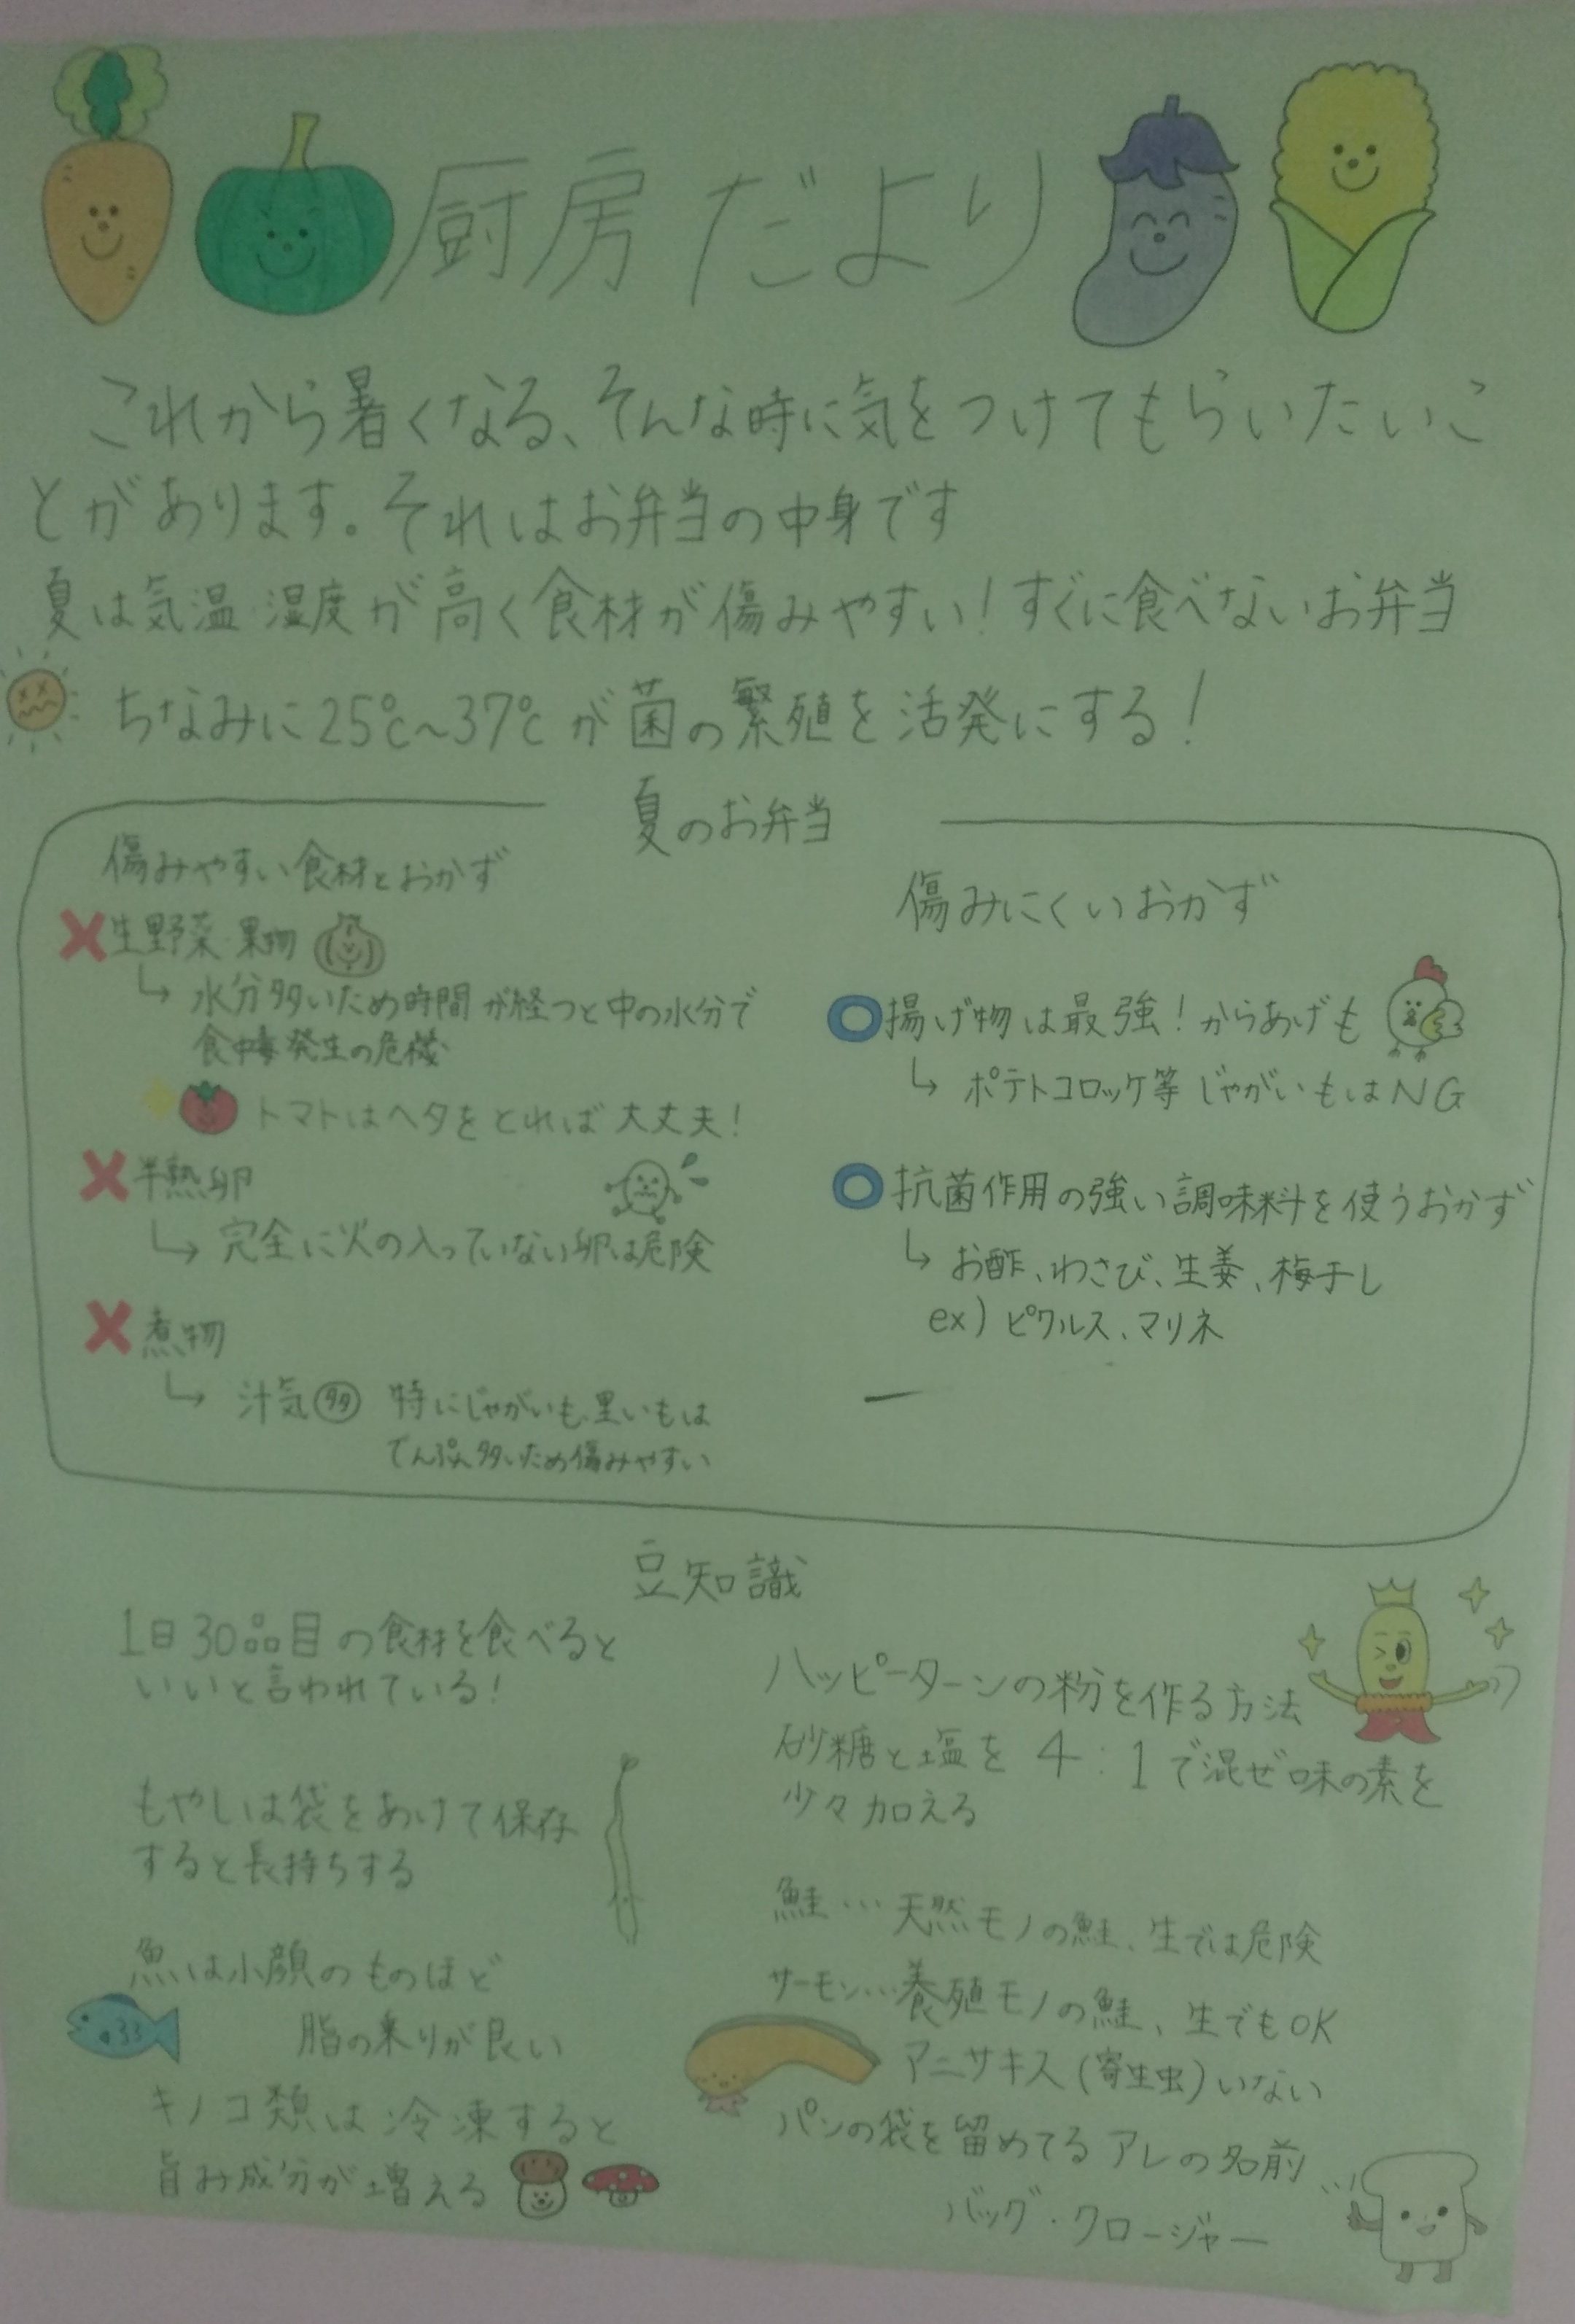 厨房だより
これから暑くなる、そんな時に気をつけてもらいたいこ
とがあります。それはお弁当の中身です
夏は気温・湿度が高く食材が傷みやすい！すぐに食べないお弁当
ちなみに25℃〜37℃が菌の繁殖を活発にする！
夏のお弁当
傷みやすい食材とおかず
生野菜・果物
↳ 水分多いため時間が経つと中の水分で
食中毒発生の危機
トマトはヘタをとれば大丈夫！
半熟卵
↳ 完全に火の入っていない卵は危険
煮物
↳ 汁気多 特にじゃがいも、里いもは
でんぷん多いため傷みやすい
傷みにくいおかず
揚げ物は最強！からあげも
↳ ポテトコロッケ等 じゃがいもはNG
抗菌作用の強い調味料を使うおかず
↳ お酢、わさび、生姜、梅干し
ex) ピクルス、マリネ
豆知識
1日30品目の食材を食べると
いいと言われている！
もやしは袋をあけて保存
すると長持ちする
魚は小顔のものほど
脂の乗りが良い
キノコ類は冷凍すると
旨み成分が増える
ハッピーターンの粉を作る方法
砂糖と塩を4：1で混ぜ味の素を
少々加える
鮭…天然モノの鮭、生では危険
サーモン…養殖モノの鮭、生でもOK
アニサキス(寄生虫)いない
パンの袋を留めてるアレの名前…
バッグ・クロージャー